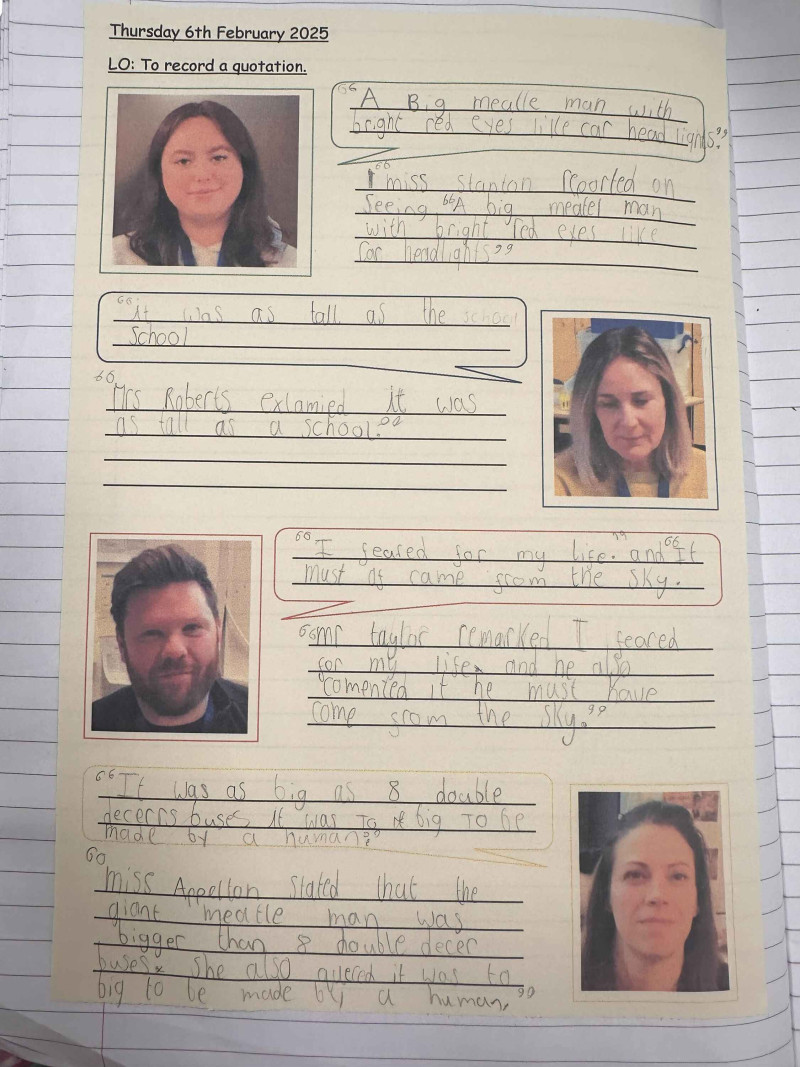 Thursday 6th February 2025
LO: To record a quotation.
"A Big mealle man with
bright red eyes like car head lights."
"miss Stanton reported on
seeing "A big meatel man
with bright red eyes like
car headlights"
"it was as tall as the school
School
"Mrs Roberts exlamied it was
as tall as a school."
"I feared for my life." and "It
must of came from the sky.
"mr taylor remarked I feared
for my life, and he also
comented it he must have
come from the sky."
"It was as big as 8 double
decerrs buses it was To big To be
made by a human."
"miss Appelton stated that the
giant meatle man was
bigger than 8 double decer
buses. She also it was to
big to be made by a human."